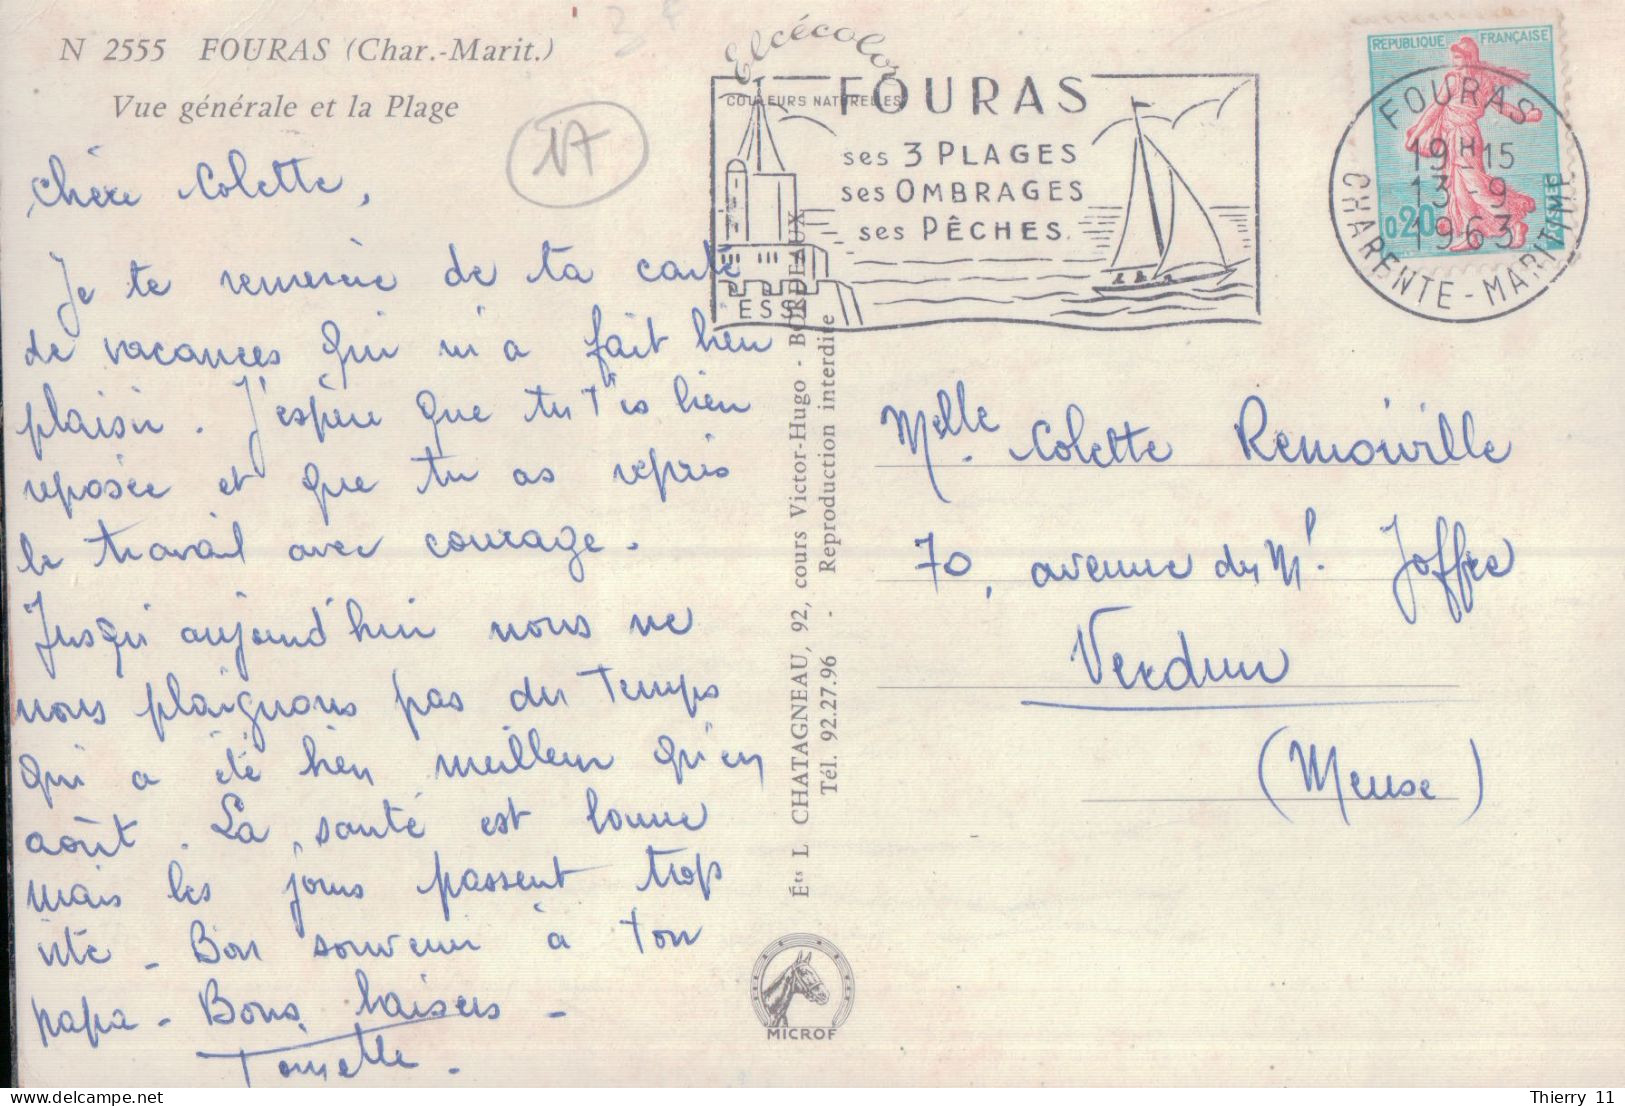 N 2555 FOURAS (Char.-Marit.)
Vue générale et la Plage
17
Chère Colette,
Je te remercie de ta carte
de vacances qui m'a fait bien
plaisir. J'espère que tu t'es bien
reposée et que tu as repris
le travail avec courage.
Jusqu'aujourd'hui nous ne
nous plaignons pas du temps
qui a été bien meilleur qu'en
août. La santé est bonne
mais les jours passent trop
vite - Bon souvenir à ton
papa - Bons baisers -
Elcécolor
COULEURS NATURELLES
Éts L CHATAGNEAU, 92, cours Victor-Hugo - BORDEAUX
Tél. 92.27.96 - Reproduction interdite
MICROF
FOURAS
ses 3 PLAGES
ses OMBRAGES
ses PÊCHES.
ESSI
REPUBLIQUE FRANÇAISE
0,20
POSTES
FOURAS
19H15
13-9
1963
CHARENTE-MARITIME
Melle. Colette Remoiville
70, avenue du Ml. Joffre
Verdun
(Meuse)
Thierry 11